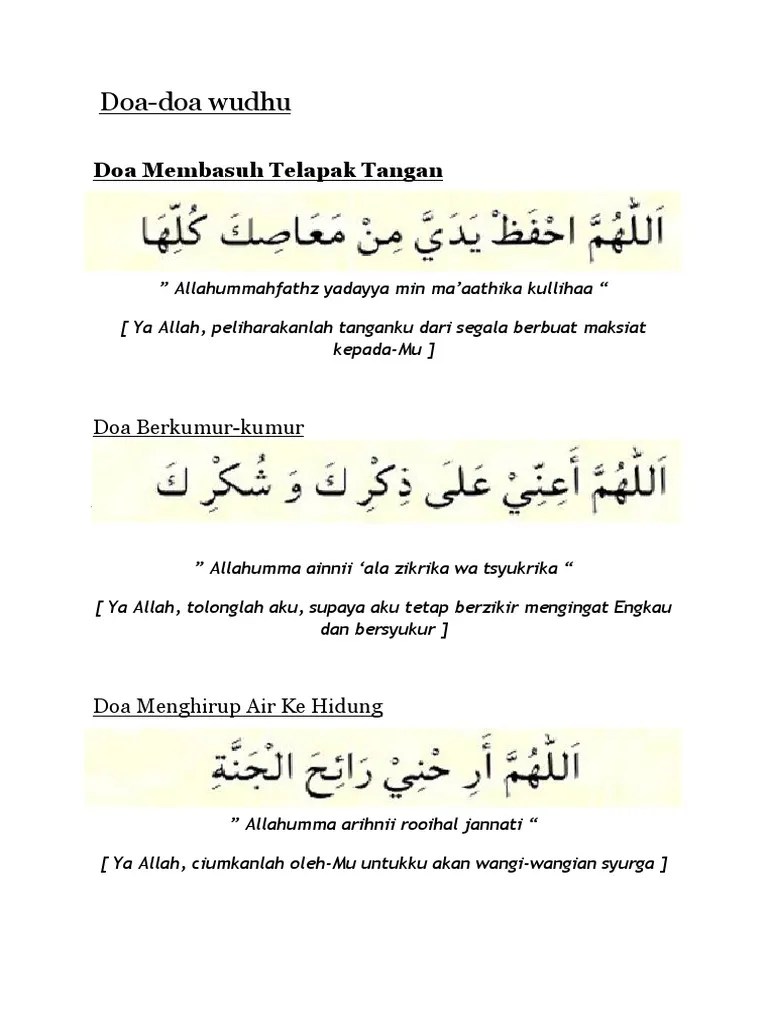 Doa-doa wudhu
Doa Membasuh Telapak Tangan
اَللّٰهُمَّ احْفَظْ يَدَيَّ مِنْ مَعَاصِكَ كُلِّهَا
” Allahummahfathz yadayya min ma’aathika kullihaa “
[ Ya Allah, peliharakanlah tanganku dari segala berbuat maksiat
kepada-Mu ]
Doa Berkumur-kumur
اَللّٰهُمَّ أَعِنِّيْ عَلَى ذِكْرِ كَ وَ شُكْرِ كَ
” Allahumma ainnii ‘ala zikrika wa tsyukrika “
[ Ya Allah, tolonglah aku, supaya aku tetap berzikir mengingat Engkau
dan bersyukur ]
Doa Menghirup Air Ke Hidung
اَللّٰهُمَّ أَرِ حْنِيْ رَائِحَ الْجَنَّةِ
” Allahumma arihnii rooihal jannati “
[ Ya Allah, ciumkanlah oleh-Mu untukku akan wangi-wangian syurga ]